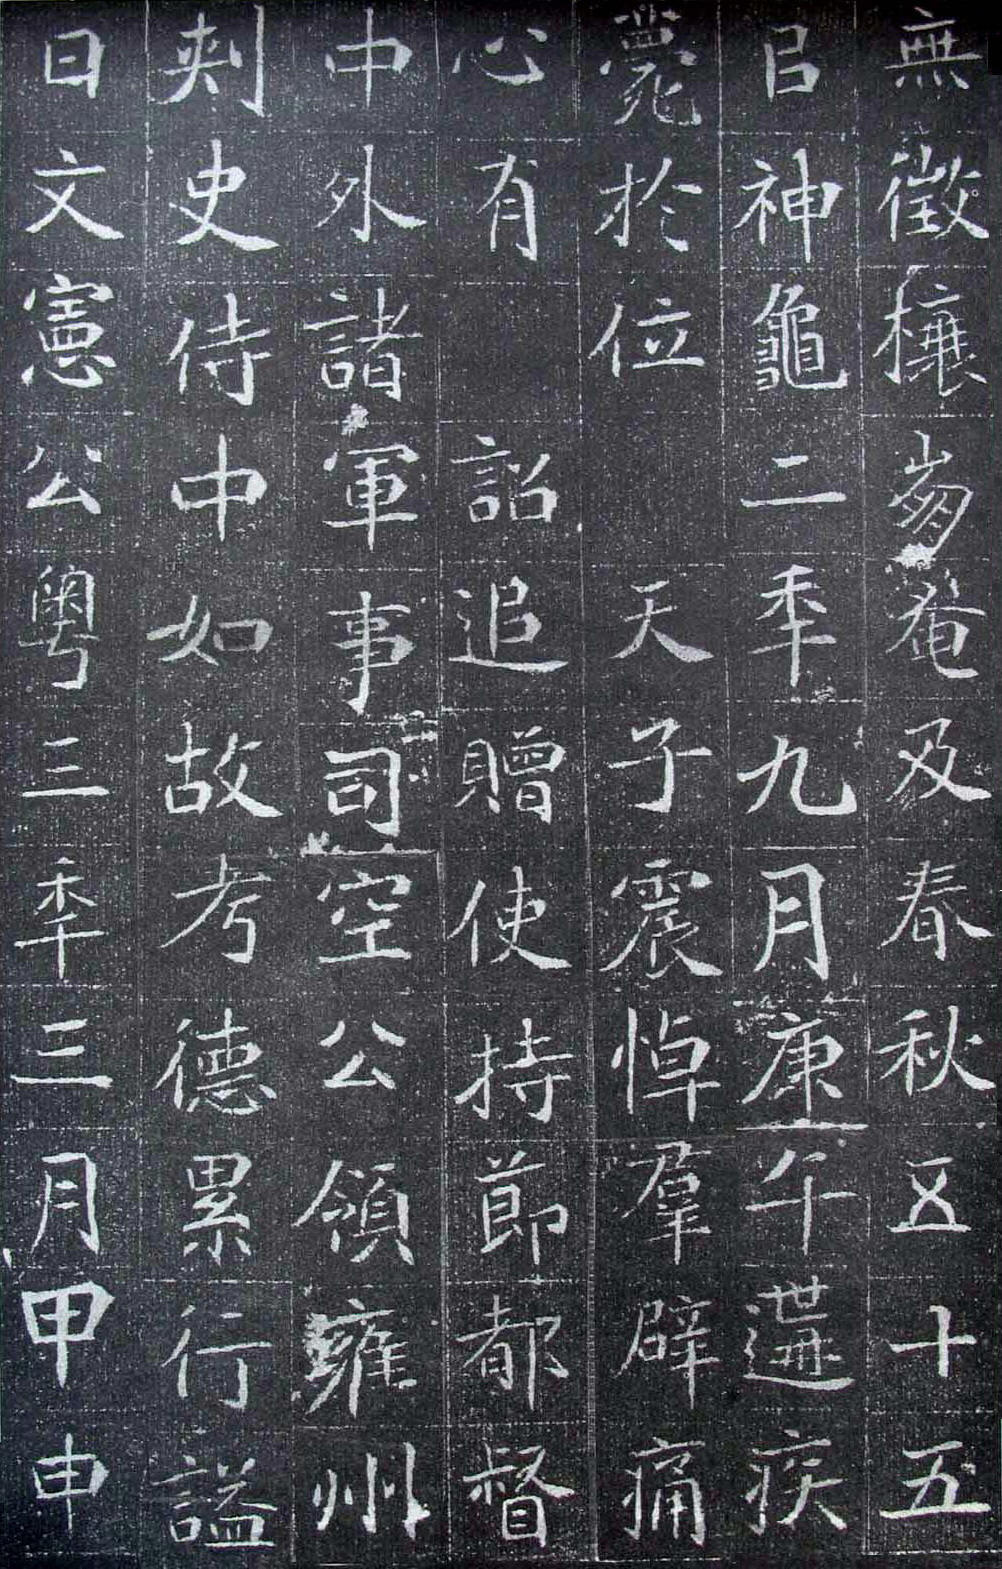 無徵穰芻奄及春秋五十五
㠯神龜二年九月庚午遘疾
薨於位 天子震悼羣辟痛
心有 詔追贈使持節都督
中外諸軍事司空公領雍州
刺史侍中如故考德累行謚
曰文憲公粵三年三月甲申